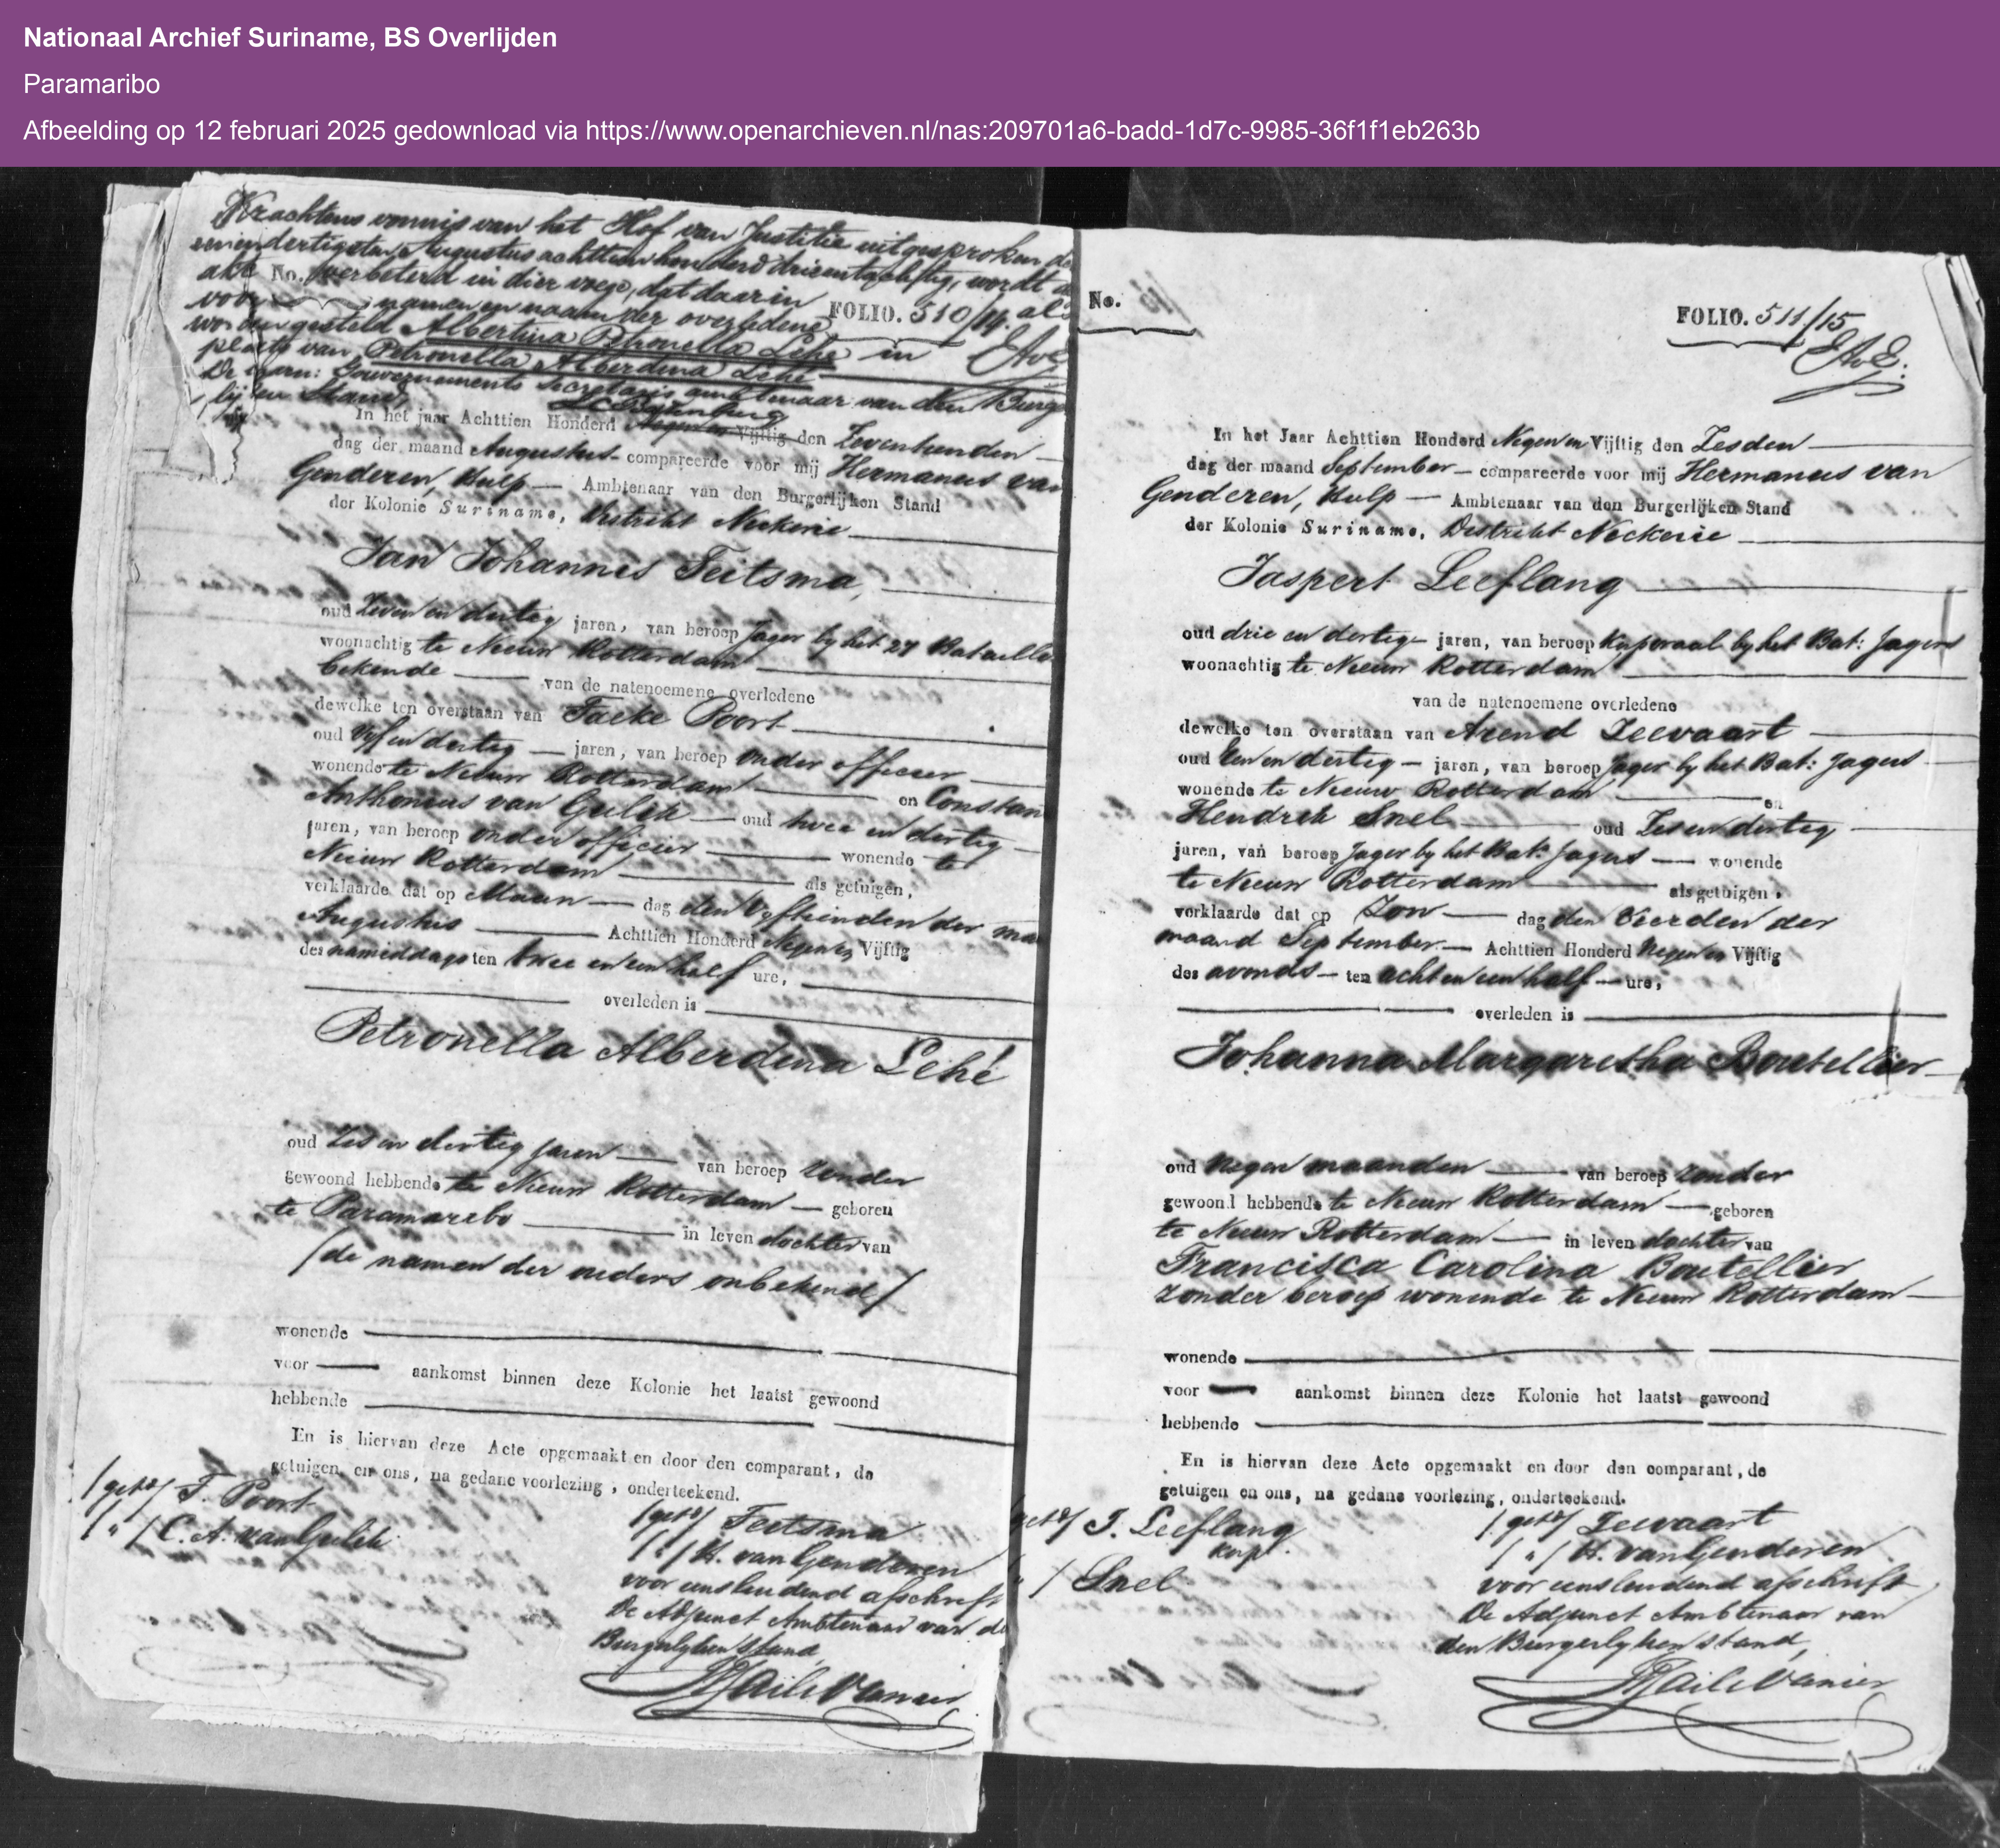 Nationaal Archief Suriname, BS Overlijden
Paramaribo
Afbeelding op 12 februari 2025 gedownload via https://www.openarchieven.nl/nas:209701a6-badd-1d7c-9985-36f1f1eb263b
Krachtens vonnis van het Hof van Justitie uitgesproken de
eenendertigsten Augustus achttienhonderd drieentachtig, wordt de
akt No. verbeterd in dier voege, dat daarin
voornamen en naam der overledene FOLIO. 510/14. als
worden gesteld Albertina Petronella Lehé in
plaats van Petronella Alberdina Lehé
De Gouvernements Secretaris ambtenaar van den Burger
lijken Stand,
In het jaar Achttien Honderd Negen en Vijftig den Zeventienden
dag der maand Augustus compareerde voor mij Hermanus van
Genderen, Hulp Ambtenaar van den Burgerlijken Stand
der Kolonie Suriname, Distrikt Nickerie
Jan Johannes Feitsma,
oud Zeven en dertig jaren, van beroep Jager by het 27 Bataillo
woonachtig te Nieuw Rotterdam
bekende van de natenoemene overledene
dewelke ten overstaan van Facke Poort
oud Vyf en dertig jaren, van beroep onder officier
wonende te Nieuw Rotterdam en Constan
Anthonius van Gulik oud twee en dertig
jaren, van beroep onder officier wonende te
Nieuw Rotterdam als getuigen,
verklaarde dat op Maan dag den Vyftienden der maa
Augustus Achttien Honderd Negen en Vijftig
des namiddags ten twee en een half ure,
overleden is
Petronella Alberdina Lehé
oud Zes en dertig jaren van beroep zonder
gewoond hebbende te Nieuw Rotterdam geboren
te Paramaribo in leven dochter van
/de namen der ouders onbekend/
wonende
voor aankomst binnen deze Kolonie het laatst gewoond
hebbende
En is hiervan deze Acte opgemaakt en door den comparant, de
getuigen en ons, na gedane voorlezing, onderteekend.
/get:d/ F. Poort
/ " / C. A. van Gulik
/get:d/ Feitsma
/ " / H. van Genderen
voor eensluidend afschrift
De Adjunct Ambtenaar van de
Burgerlyken Stand,
No.
FOLIO. 511/15
In het Jaar Achttien Honderd Negen en Vijftig den Zesden
dag der maand September compareerde voor mij Hermanus van
Genderen, Hulp Ambtenaar van den Burgerlijken Stand
der Kolonie Suriname, Distrikt Nickerie
Jaspert Leeflang
oud drie en dertig jaren, van beroep Kaporaal by het Bat: Jagers
woonachtig te Nieuw Rotterdam
van de natenoemene overledene
dewelke ten overstaan van Arend Zeevaart
oud Een en dertig jaren, van beroep Jager by het Bat: Jagers
wonende te Nieuw Rotterdam en
Hendrik Snel oud Zes en dertig
jaren, van beroep Jager by het Bat: Jagers wonende
te Nieuw Rotterdam als getuigen,
verklaarde dat op Zon dag den Vierden der
maand September Achttien Honderd Negen en Vijftig
des avonds ten acht en een half ure,
overleden is
Johanna Margaretha Boutellier
oud Negen maanden van beroep zonder
gewoond hebbende te Nieuw Rotterdam geboren
te Nieuw Rotterdam in leven dochter van
Francisca Carolina Boutellier
zonder beroep wonende te Nieuw Rotterdam
wonende
voor aankomst binnen deze Kolonie het laatst gewoond
hebbende
En is hiervan deze Acte opgemaakt en door den comparant, de
getuigen en ons, na gedane voorlezing, onderteekend.
get:d/ J. Leeflang
Kap.
" / Snel
/get:d/ Zeevaart
/ " / H. van Genderen
voor eensluidend afschrift
De Adjunct Ambtenaar van
den Burgerlyken stand,